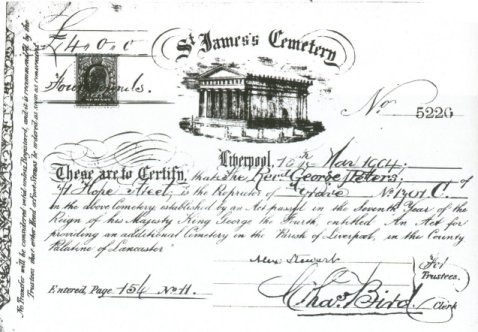 £4.0.0
Four Pounds.
St James's Cemetery
No 5226
Liverpool, 15th Mar 1904.
These are to Certify, that the Revd George Peters of
71 Hope Street, is the Proprietor of Grave No 1307 C.
in the above Cemetery established by an Act passed in the Seventh Year of the
Reign of his Majesty King George the Fourth, entitled An Act for
providing an additional Cemetery in the Parish of Liverpool, in the County
Palatine of Lancaster
Alex Stewart
For Trustees.
Entered, Page 154 No 11.
Chas Bird. Clerk
No Transfer will be considered valid unless Registered, and it is recommended by the
Trustees that either Head or Foot Stones be ordered as soon as convenient